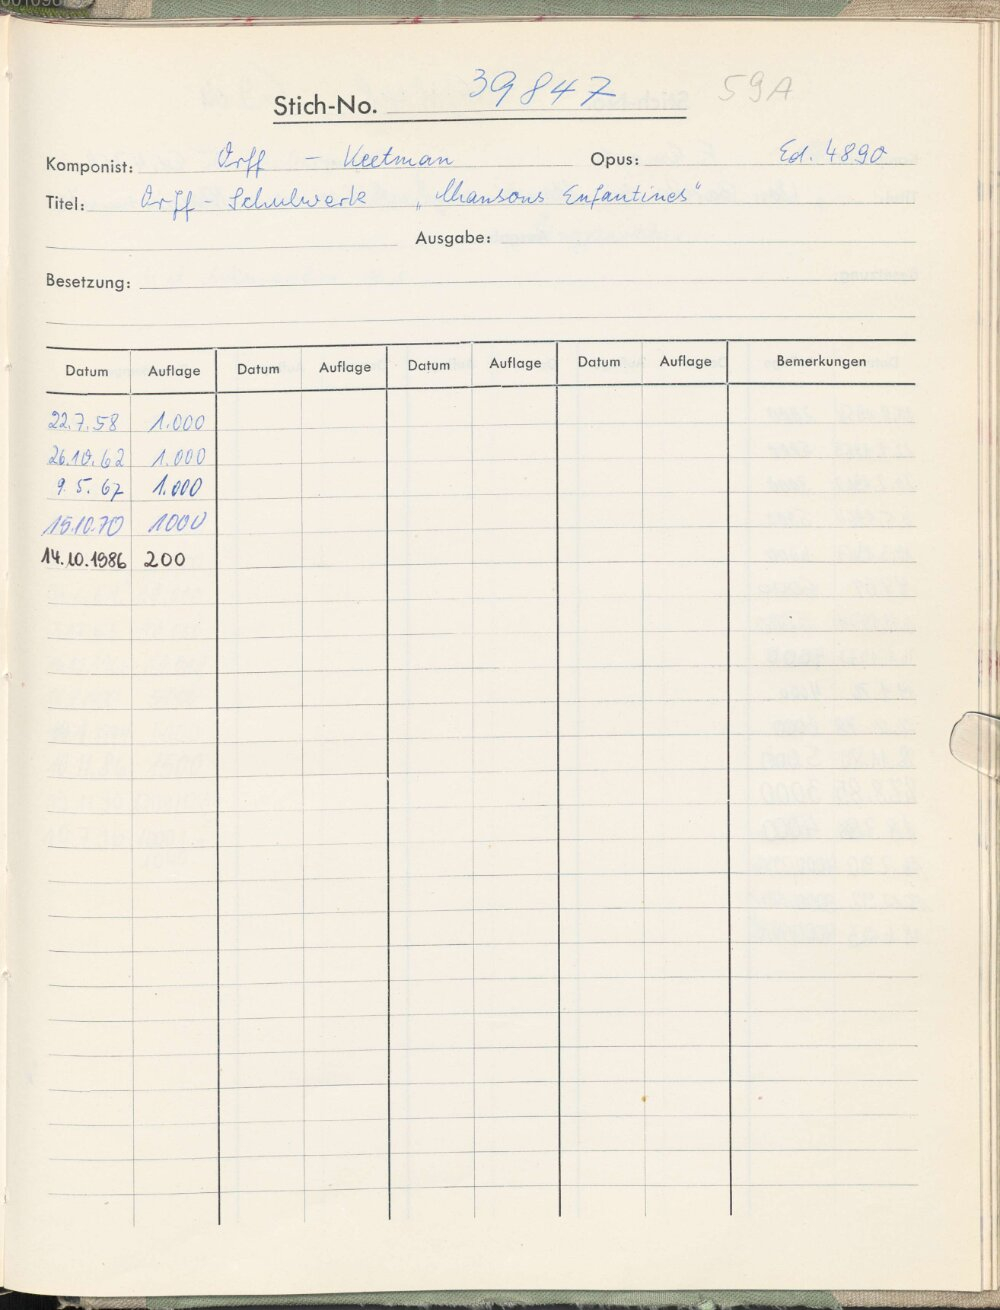 Stich-No. 39847 59A
Komponist: Orff - Keetman Opus: Ed. 4890
Titel: Orff - Schulwerk „Chansons Enfantines"
Ausgabe:
Besetzung:
Datum Auflage Datum Auflage Datum Auflage Datum Auflage Bemerkungen
22.7.58 1.000
26.10.62 1.000
9.5.67 1.000
15.10.70 1000
14.10.1986 200